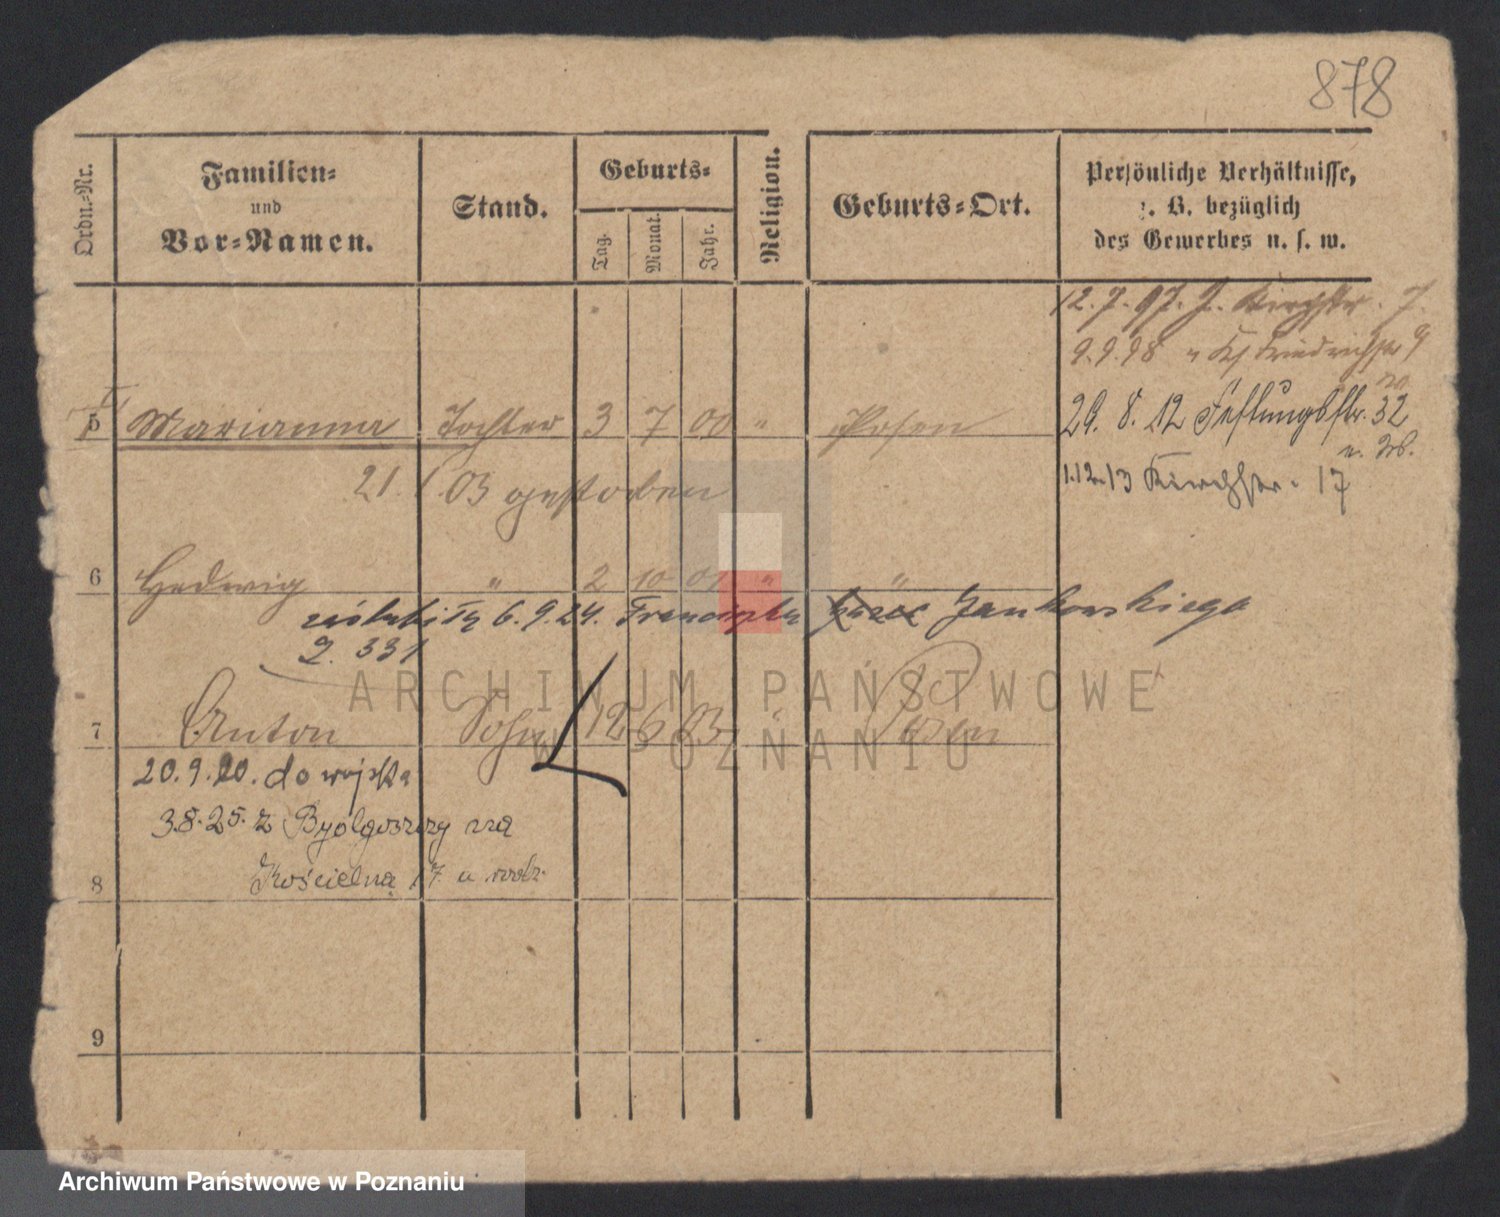 878
Ordn.-Nr.
Familien-
und
Vor-Namen.
Stand.
Geburts-
Tag.
Monat.
Jahr.
Religion.
Geburts-Ort.
Persönliche Verhältnisse,
z. B. bezüglich
des Gewerbes u. s. w.
12.7.97. J. Kirchstr. 7.
9.9.98 " Friedrichstr 9
5 Marianna Tochter 3 7 00 " Posen
29. 8. 12 Festungsstr. 32
21. 1. 03 gestorben
1.12.13 Kirchstr. 17
6 Hedwig " 2 10 01 " "
zaślubiła 6.9.24. Franciszka Jankowskiego
2. 331
ARCHIWUM PAŃSTWOWE
W POZNANIU
7 Anton Sohn 12 6 03 " Posen
20.9.20. do wojska
3.8.25. z Bydgoszczy na
Kościelną 17 u rodz.
8
9
Archiwum Państwowe w Poznaniu